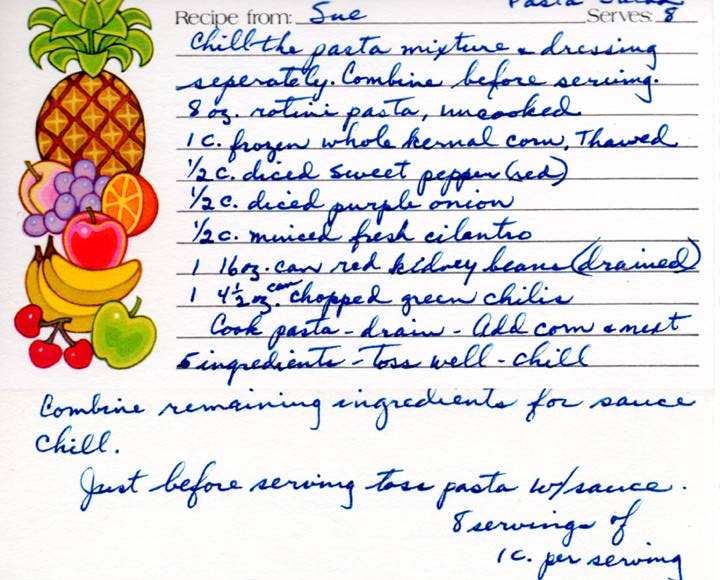 Pasta Salad
Recipe from: Sue Serves: 8
Chill the pasta mixture & dressing
seperately. Combine before serving.
8 oz. rotini pasta, uncooked
1 c. frozen whole kernal corn, Thawed
1/2 c. diced sweet pepper (red)
1/2 c. diced purple onion
1/2 c. minced fresh cilantro
1 16 oz. can red kidney beans (drained)
1 4 1/2 oz. can chopped green chilis
Cook pasta - drain - Add corn & next
5 ingredients - toss well - chill
Combine remaining ingredients for sauce
Chill.
Just before serving toss pasta w/sauce.
8 servings of
1 c. per serving